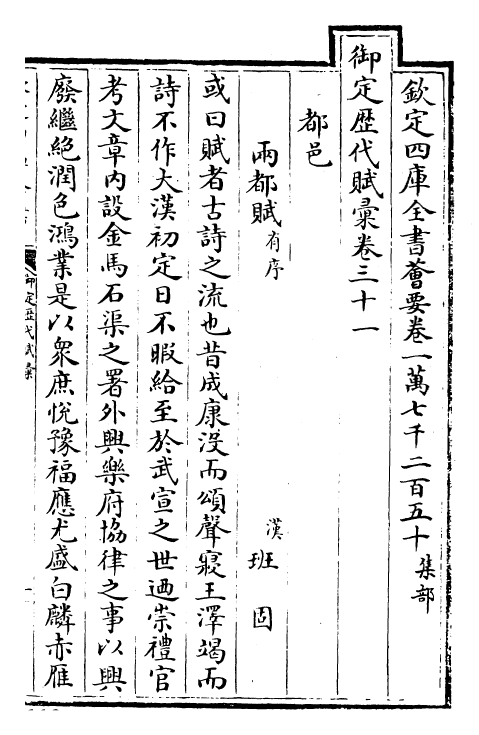 欽定四庫全書薈要卷一萬七千二百五十 集部
御定歴代賦彙卷三十一
都邑
兩都賦 有序
漢 班固
或曰賦者古詩之流也昔成康沒而頌聲寢王澤竭而
詩不作大漢初定日不暇給至於武宣之世迺崇禮官
考文章内設金馬石渠之署外興樂府協律之事以興
廢繼絶潤色鴻業是以衆庶悅豫福應尤盛白麟赤雁
御定歴代賦彙
一